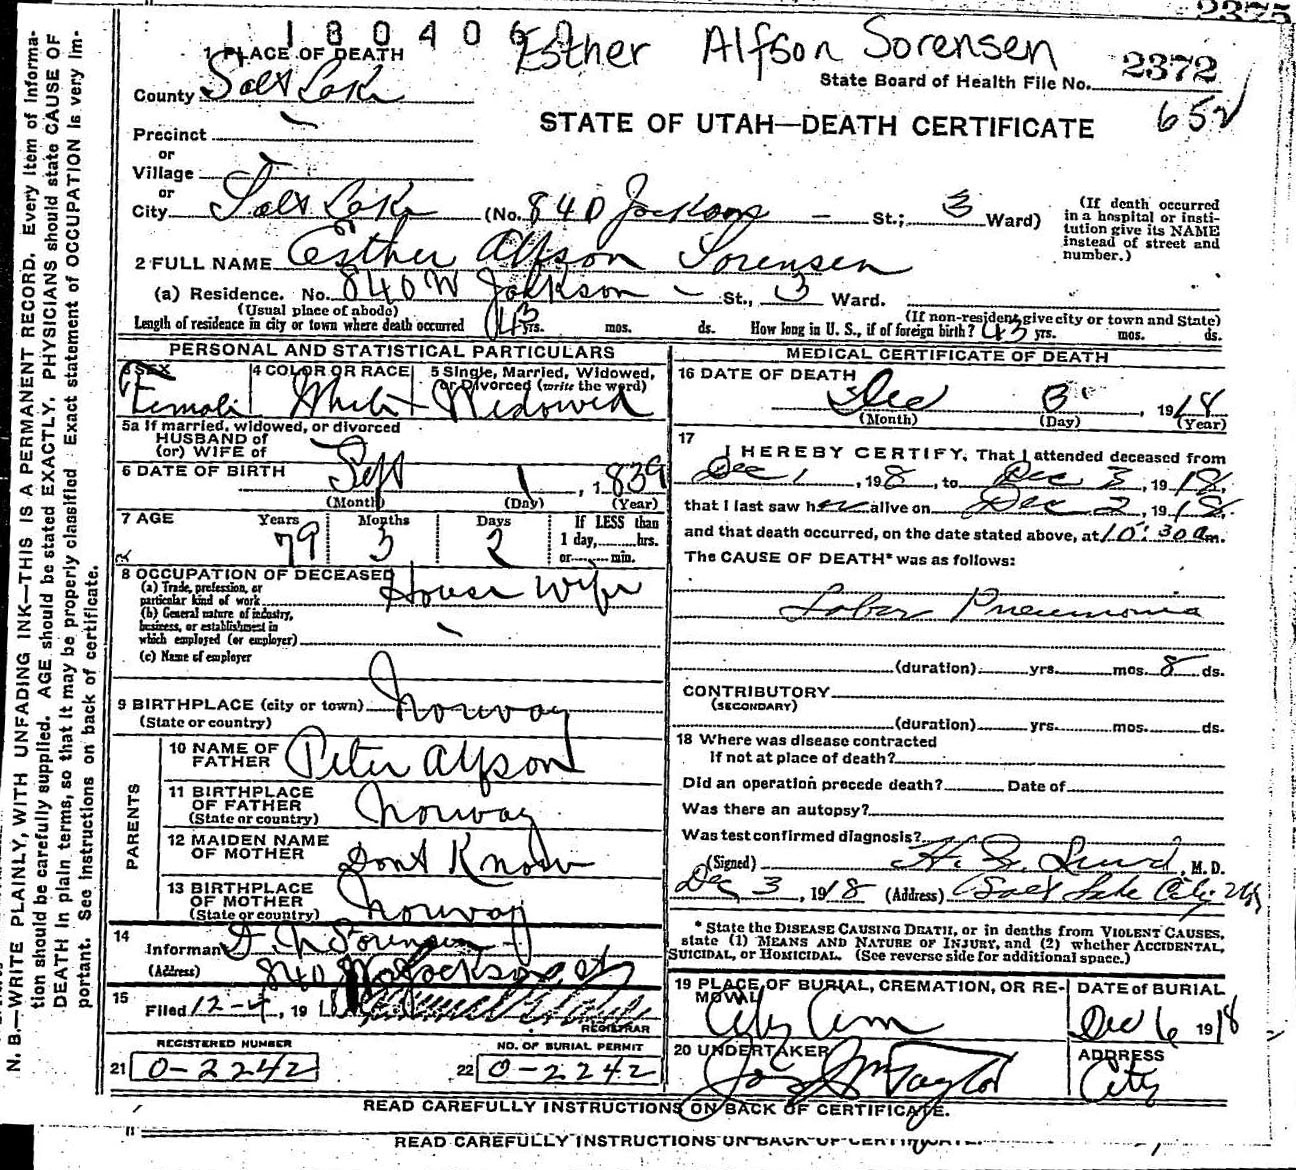 2375
1 8 0 4 0 6
Esther Alfson Sorensen
1 PLACE OF DEATH
2372
State Board of Health File No.
County Salt Lake
652
STATE OF UTAH—DEATH CERTIFICATE
Precinct
or
Village
or
City Salt Lake (No. 840 Jackson — St.; 3 Ward)
(If death occurred
in a hospital or insti-
tution give its NAME
instead of street and
number.)
2 FULL NAME Esther Alfson Sorensen
(a) Residence. No. 840 W Jackson — St., 3 Ward.
(Usual place of abode)
(If non-resident give city or town and State)
Length of residence in city or town where death occurred 43 yrs. mos. ds. How long in U. S., if of foreign birth? 43 yrs. mos. ds.
PERSONAL AND STATISTICAL PARTICULARS
3 SEX
Female
4 COLOR OR RACE
White
5 Single, Married, Widowed,
or Divorced (write the word)
Widowed
5a If married, widowed, or divorced
HUSBAND of
(or) WIFE of
6 DATE OF BIRTH Sept 1, 1839
(Month) (Day) (Year)
7 AGE Years Months Days If LESS than
79 3 2 1 day, hrs.
or min.
8 OCCUPATION OF DECEASED
(a) Trade, profession, or
particular kind of work House Wife
(b) General nature of industry,
business, or establishment in
which employed (or employer)
(c) Name of employer
9 BIRTHPLACE (city or town) Norway
(State or country)
PARENTS
10 NAME OF
FATHER Peter Alfson
11 BIRTHPLACE
OF FATHER
(State or country) Norway
12 MAIDEN NAME
OF MOTHER Dont Know
13 BIRTHPLACE
OF MOTHER
(State or country) Norway
14
Informant Sorensen
(Address) 840 Jackson
15
Filed 12-4, 191
REGISTRAR
REGISTERED NUMBER
21 0-2242
NO. OF BURIAL PERMIT
22 0-2242
MEDICAL CERTIFICATE OF DEATH
16 DATE OF DEATH
Dec 3, 1918
(Month) (Day) (Year)
17
I HEREBY CERTIFY, That I attended deceased from
Dec 1, 198, to Dec 3, 1918,
that I last saw her alive on Dec 2, 1918,
and that death occurred, on the date stated above, at 10:30 a m.
The CAUSE OF DEATH* was as follows:
Lobar Pneumonia
(duration) yrs. mos. 8 ds.
CONTRIBUTORY
(SECONDARY)
(duration) yrs. mos. ds.
18 Where was disease contracted
if not at place of death?
Did an operation precede death? Date of
Was there an autopsy?
Was test confirmed diagnosis?
(Signed) H. S. Lund, M. D.
Dec 3, 1918 (Address) Salt Lake City
* State the DISEASE CAUSING DEATH, or in deaths from VIOLENT CAUSES,
state (1) MEANS AND NATURE OF INJURY, and (2) whether ACCIDENTAL,
SUICIDAL, or HOMICIDAL. (See reverse side for additional space.)
19 PLACE OF BURIAL, CREMATION, OR RE-
MOVAL
City Cem
DATE of BURIAL
Dec 6 1918
20 UNDERTAKER
Taylor
ADDRESS
City
READ CAREFULLY INSTRUCTIONS ON BACK OF CERTIFICATE.
READ CAREFULLY INSTRUCTIONS ON BACK OF CERTIFICATE.
N. B.—WRITE PLAINLY, WITH UNFADING INK—THIS IS A PERMANENT RECORD. Every item of informa-
tion should be carefully supplied. AGE should be stated EXACTLY. PHYSICIANS should state CAUSE OF
DEATH in plain terms, so that it may be properly classified. Exact statement of OCCUPATION is very im-
portant. See instructions on back of certificate.